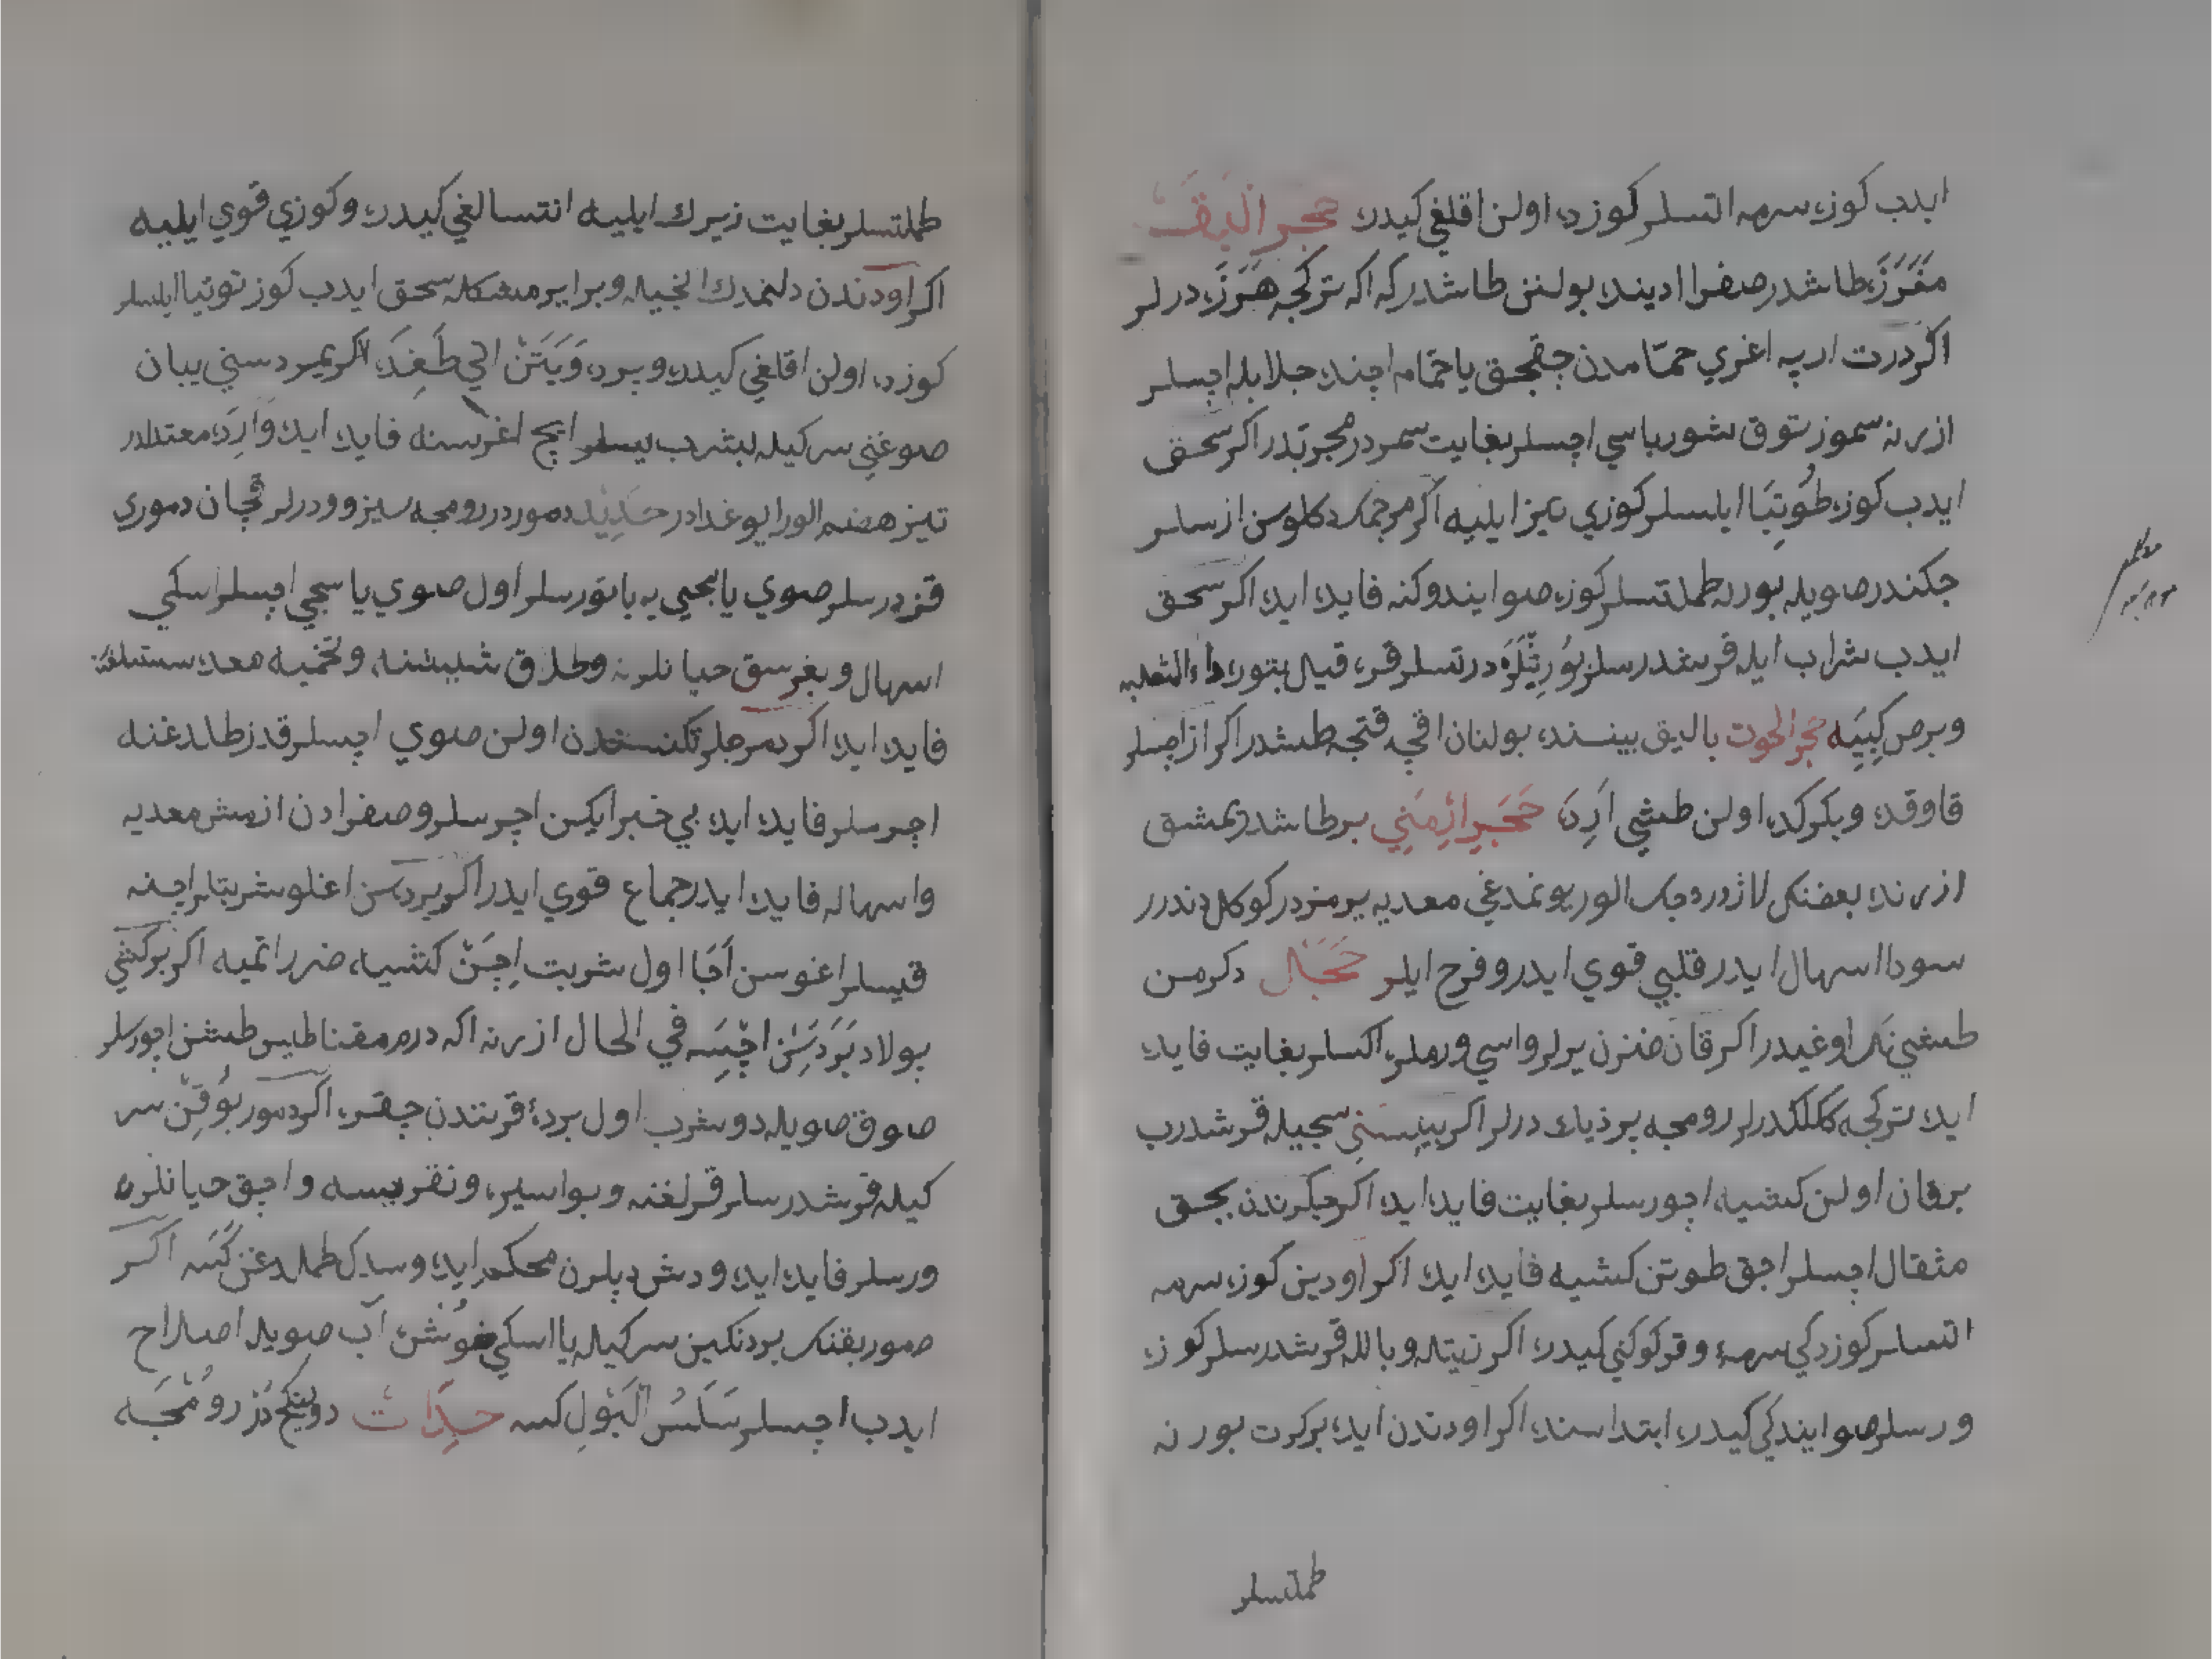 ايدب كوزه سرمه التسلر كوزده اولن اقلغي كيدره حجر البقر
مَفَرَزَه طاشدر صفرا ادينده بولنن طاشدركه اكه تركجه هَرَزَه درلر
اكر درت ارپه اغري حمّامدن چقجق يا حمّام اچنده جلابله اچسلر
ازرنه سموز توق شورباسي اچسلر بغايت سمردر مجربدر اكر سحق
ايدب كوزه طُوتِيَا ايلسلر كوزي تيز ايليه اكر مرجمك دكلوسن ازسلر
جكندر صويله بورنه طملتسلر كوزه صو ايندوكنه فايده ايده اكر سحق
ايدب شراب ايله قرشدرسلر درتسلر قره قيل بتوره داء الثعلبه
وبرص كِبِيَه حجر الحوت باليق بينسنده بولنان اقچه طشدر اكر ازاچسلر
قاوقده وبكركده اولن طشي اَرِدَه حَجَرِ اَرْمَنِي بر طاشدر يمشق
ازرنده بعضنك لاژورده جك الور يونمدغي معديه يرمزدر كوكل دندرر
سودا اسهال ايدر قلبي قوي ايدر وفرح ايلر حَجَال دكرمن
طشي اوغيدر اكر قان اسي ورملره اكسلر بغايت فايده
ايده تركجه ككلكدرلر رومجه پرذيك درلر اكر بيسني سجيله قرشدرب
يرقان اولن كشيه اچورسلر بغايت فايده ايده اكر جكرندن بچق
مثقال اچسلر اجق طوتن كشيه فايده ايده اكر اودين كوزه سرمه
التسلر كوزدكي وقركوكني كيدره اكر وباللـه قرشدرسلر كوزه
ورسلر صو ايندكي كيدره ابتداسنده اكر اودندن ايده بركرت بورنه
طملتسلر
طملتسلر بغايت زيرك ايليه انتسالغي كيدره وكوزي قوي ايليه
اكر اودندن دلنمدك انجيله وبراير مشكله سحق ايدب كوزه توتيا ايلسلر
كوزده اولن اقلغي كيدره اكر يمردسني يبان
صوغني سركيله بشرب يسلر ايچ اغرسنه فايده ايده وَارِدَه معتدلدر
تيز هضم الور ايو غدادر حَدِيْد دموردر رومجه سيزوودرلر قچان دموري
قزدرسلر صوي يا سجي يه باتورسلر اول صوي يا سجي اچسلر اسكي
اسهال وبغرسق حيانلرنه وطلاق شيشنه وتخميه معده سستلغنه
فايده ايده اكر دمرجلر تكنسندن اولن صوي اچسلر قدز طلدغنه
اچرسلر فايده ايده بي خبر ايكن اچرسلر وصفرادن ازمش معديه
واسهاله فايده ايدر جماع قوي ايدر اكر يردسن اغلو شربتلر اچنه
قيسلر اغوسن اول شربت اِچَنْ كشيه ضرر اتميه اكر بركشي
بولاد بَرَدَسِن اچِسَه في الحال ازرنه اكه درهم مقناطيس طشن اچورسلر
صوق صويله دوشرب اول برده قرنندن چقره اكر دمور بُوقِنْ سر
كيله قرشدرسلر قرلغنه وبواسيره ونقريسه واچق حيانلره
ورسلر فايده ايده ودش دپلرن محكم ايده وسدك طملدغن كَسَه اكر
دمور بقنك بردنكين سركيله يا اسكي خوش آب صويله اصلاح
ايدب اچسلر سَلَسُ الْبَوْلِ كسه حِدَاَت رُومْجَه